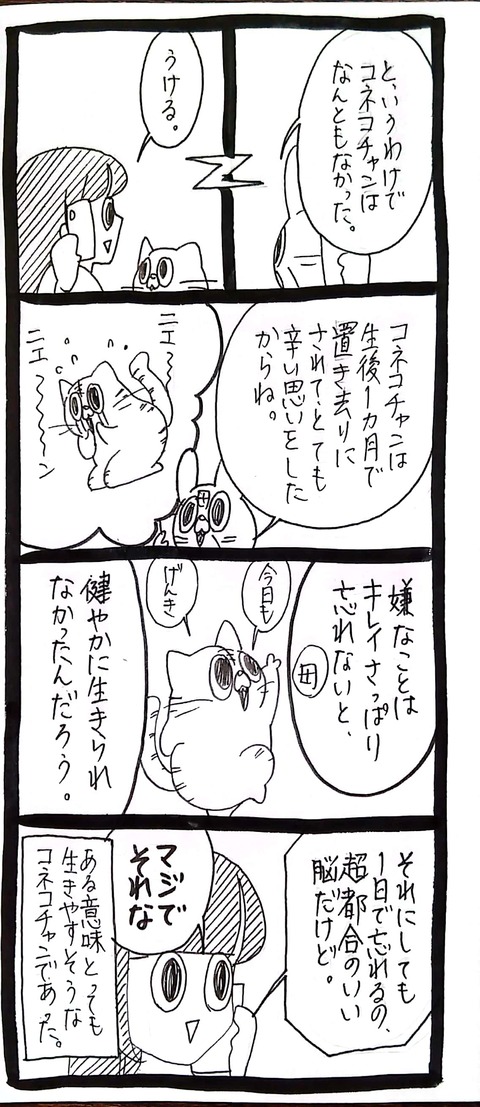 と、いうわけで
コネコチャンは
なんともなかった。
うける。
コネコチャンは
生後1カ月で
置き去りに
されて、とても
辛い思いをした
からね。
ニエ〜〜
ニエ〜〜〜ン
嫌なことは
キレイさっぱり
忘れないと、
母
今日も
げんき
健やかに生きられ
なかったんだろう。
それにしても
1日で忘れるの、
超都合のいい
脳だけど。
マジで
それな
ある意味とっても
生きやすそうな
コネコチャンであった。